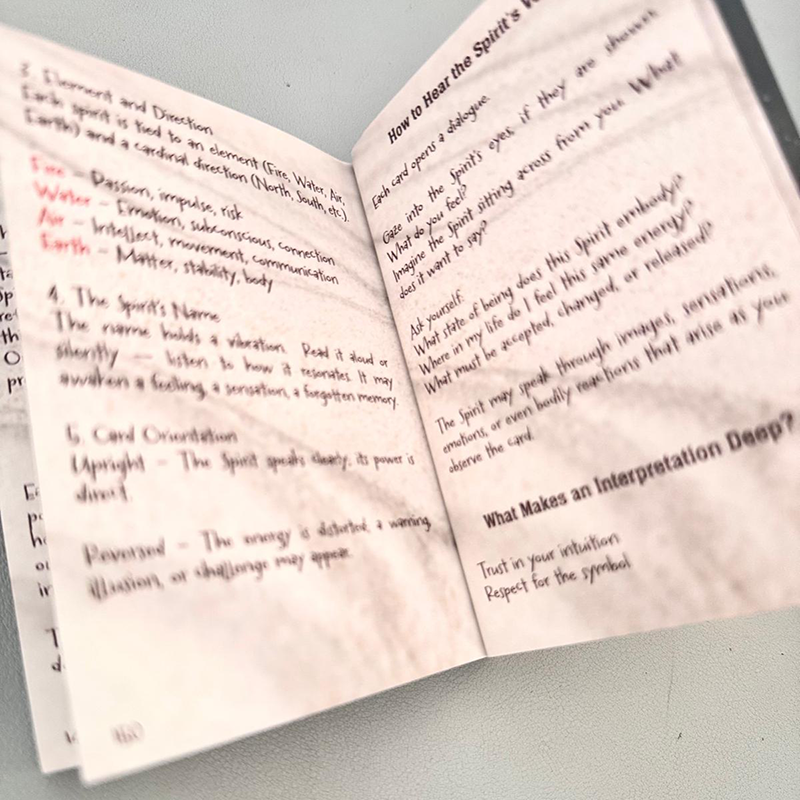 3. Element and Direction
Each spirit is tied to an element (Fire, Water, Air,
Earth) and a cardinal direction (North, South, etc.).
Fire – Passion, impulse, risk
Water – Emotion, subconscious, connection
Air – Intellect, movement, communication
Earth – Matter, stability, body
4. The Spirit's Name
The name holds a vibration. Read it aloud or
silently — listen to how it resonates. It may
awaken a feeling, a sensation, a forgotten memory.
5. Card Orientation
Upright – The Spirit speaks clearly, its power is
direct.
Reversed – The energy is distorted, a warning,
illusion, or challenge may appear.
How to Hear the Spirit's
Each card opens a dialogue.
Gaze into the Spirit's eyes, if they are shown.
What do you feel?
Imagine the Spirit sitting across from you. What
does it want to say?
Ask yourself:
What state of being does this Spirit embody?
Where in my life do I feel this same energy?
What must be accepted, changed, or released?
The Spirit may speak through images, sensations,
emotions, or even bodily reactions that arise as you
observe the card.
What Makes an Interpretation Deep?
Trust in your intuition
Respect for the symbol